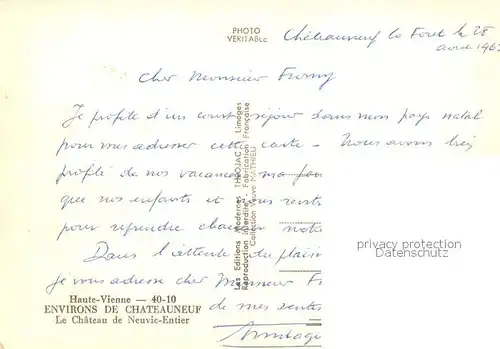 PHOTO
VERITABLE
Châteauneuf la Foret le 28
avril 196
Cher Monsieur
Je profite d'un court séjour dans mon pays natal
pour vous adresser cette carte - Nous avons bien
profité de nos vacances, ma
que nos enfants et nous
pour reprendre notre
Dans l'attente du plaisir
je vous adresse cher Monsieur
de mes
Les Editions Modernes THEOJAC - Limoges
Reproduction interdite - Fabrication Française
Collection Veuve MATHIEU
privacy protection
Datenschutz
Haute-Vienne — 40-10
ENVIRONS DE CHATEAUNEUF
Le Château de Neuvic-Entier